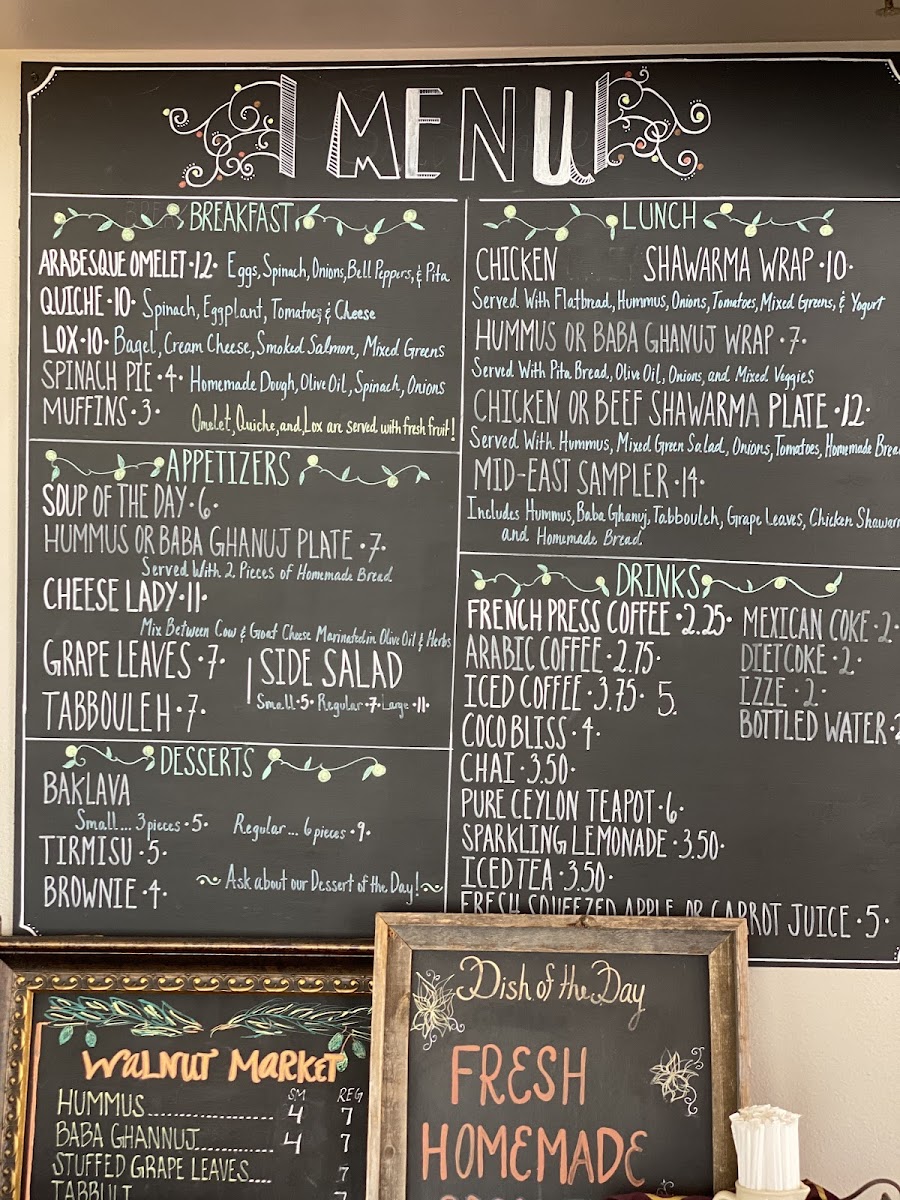 MENU
BREAKFAST
ARABESQUE OMELET · 12 · Eggs, Spinach, Onions, Bell Peppers, & Pita
QUICHE · 10 · Spinach, Eggplant, Tomatoes & Cheese
LOX · 10 · Bagel, Cream Cheese, Smoked Salmon, Mixed Greens
SPINACH PIE · 4 · Homemade Dough, Olive Oil, Spinach, Onions
MUFFINS · 3 · Omelet, Quiche, and Lox are served with fresh fruit!
APPETIZERS
SOUP OF THE DAY · 6 ·
HUMMUS OR BABA GHANUJ PLATE · 7 ·
Served With 2 Pieces of Homemade Bread
CHEESE LADY · 11 ·
Mix Between Cow & Goat Cheese Marinated in Olive Oil & Herbs
GRAPE LEAVES · 7 ·
TABBOULEH · 7 ·
SIDE SALAD
Small · 5 · Regular · 7 · Large · 11 ·
DESSERTS
BAKLAVA
Small... 3 pieces · 5 · Regular... 6 pieces · 9 ·
TIRMISU · 5 ·
BROWNIE · 4 ·
~ Ask about our Dessert of the Day! ~
LUNCH
CHICKEN SHAWARMA WRAP · 10 ·
Served With Flatbread, Hummus, Onions, Tomatoes, Mixed Greens, & Yogurt
HUMMUS OR BABA GHANUJ WRAP · 7 ·
Served With Pita Bread, Olive Oil, Onions, and Mixed Veggies
CHICKEN OR BEEF SHAWARMA PLATE · 12 ·
Served With Hummus, Mixed Green Salad, Onions, Tomatoes, Homemade Brea
MID-EAST SAMPLER · 14 ·
Includes Hummus, Baba Ghanuj, Tabbouleh, Grape Leaves, Chicken Shawar
and Homemade Bread
DRINKS
FRENCH PRESS COFFEE · 2.25 ·
ARABIC COFFEE · 2.75 ·
ICED COFFEE · 3.75 · 5.
COCO BLISS · 4 ·
CHAI · 3.50 ·
PURE CEYLON TEAPOT · 6 ·
SPARKLING LEMONADE · 3.50 ·
ICED TEA · 3.50 ·
FRESH SQUEEZED APPLE OR CARROT JUICE · 5 ·
MEXICAN COKE · 2 ·
DIET COKE · 2 ·
IZZE · 2 ·
BOTTLED WATER · 2
WALNUT MARKET
SM REG
HUMMUS 4 7
BABA GHANNUJ 4 7
STUFFED GRAPE LEAVES.... 7
TABBULI 7
Dish of the Day
FRESH
HOMEMADE